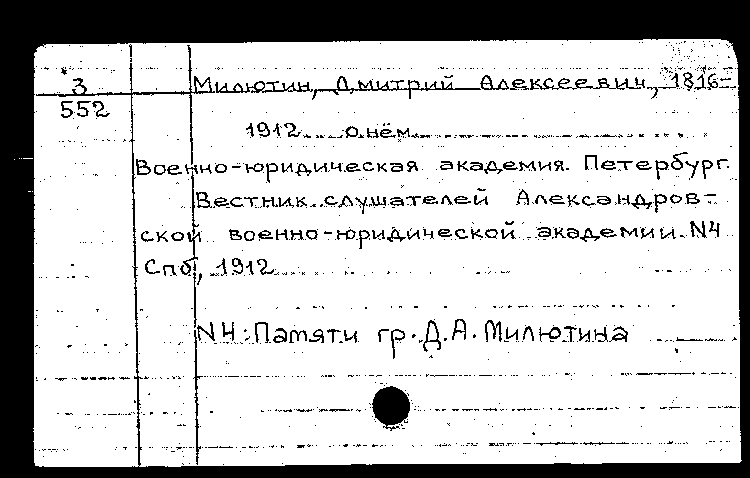 3 Милютин, Дмитрий Алексеевич, 1816-
552
1912 о нём
Военно-юридическая академия. Петербург.
Вестник слушателей Александров-
ской военно-юридической академии. N4
Спб, 1912
N4: Памяти гр. Д. А. Милютина